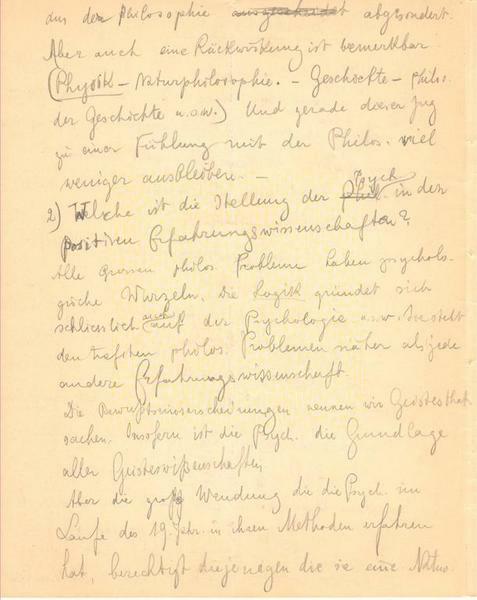 aus der Philosophie ausgescheidet abgesondert.
Aber auch eine Rückwirkung ist bemerkbar
(Physik – Naturphilosophie. – Geschichte – philos.
der Geschichte u.s.w.) Und gerade dieser Zug
zu einer Fühlung mit der Philos. viel
weniger ausbleiben. –
2) Welche ist die Stellung der Phil. Psych. in den
positiven Erfahrungswissenschaften?
Alle grossen philos. Probleme haben psycholo-
gische Wurzeln. Die Logik gründet sich
schliesslich auch auf der Psychologie u.s.w. Sie steht
den tiefsten philos. Problemen näher als jede
andere Erfahrungswissenschaft.
Die Bewußtseinserscheinungen nennen wir Geistesthat-
sachen. Insofern ist die Psych. die Grundlage
aller Geisteswißenschaften.
Aber die große Wendung die die Psych. im
Laufe des 19. Jahr. in ihren Methoden erfahren
hat, berechtigt diejenigen die sie eine Natur-